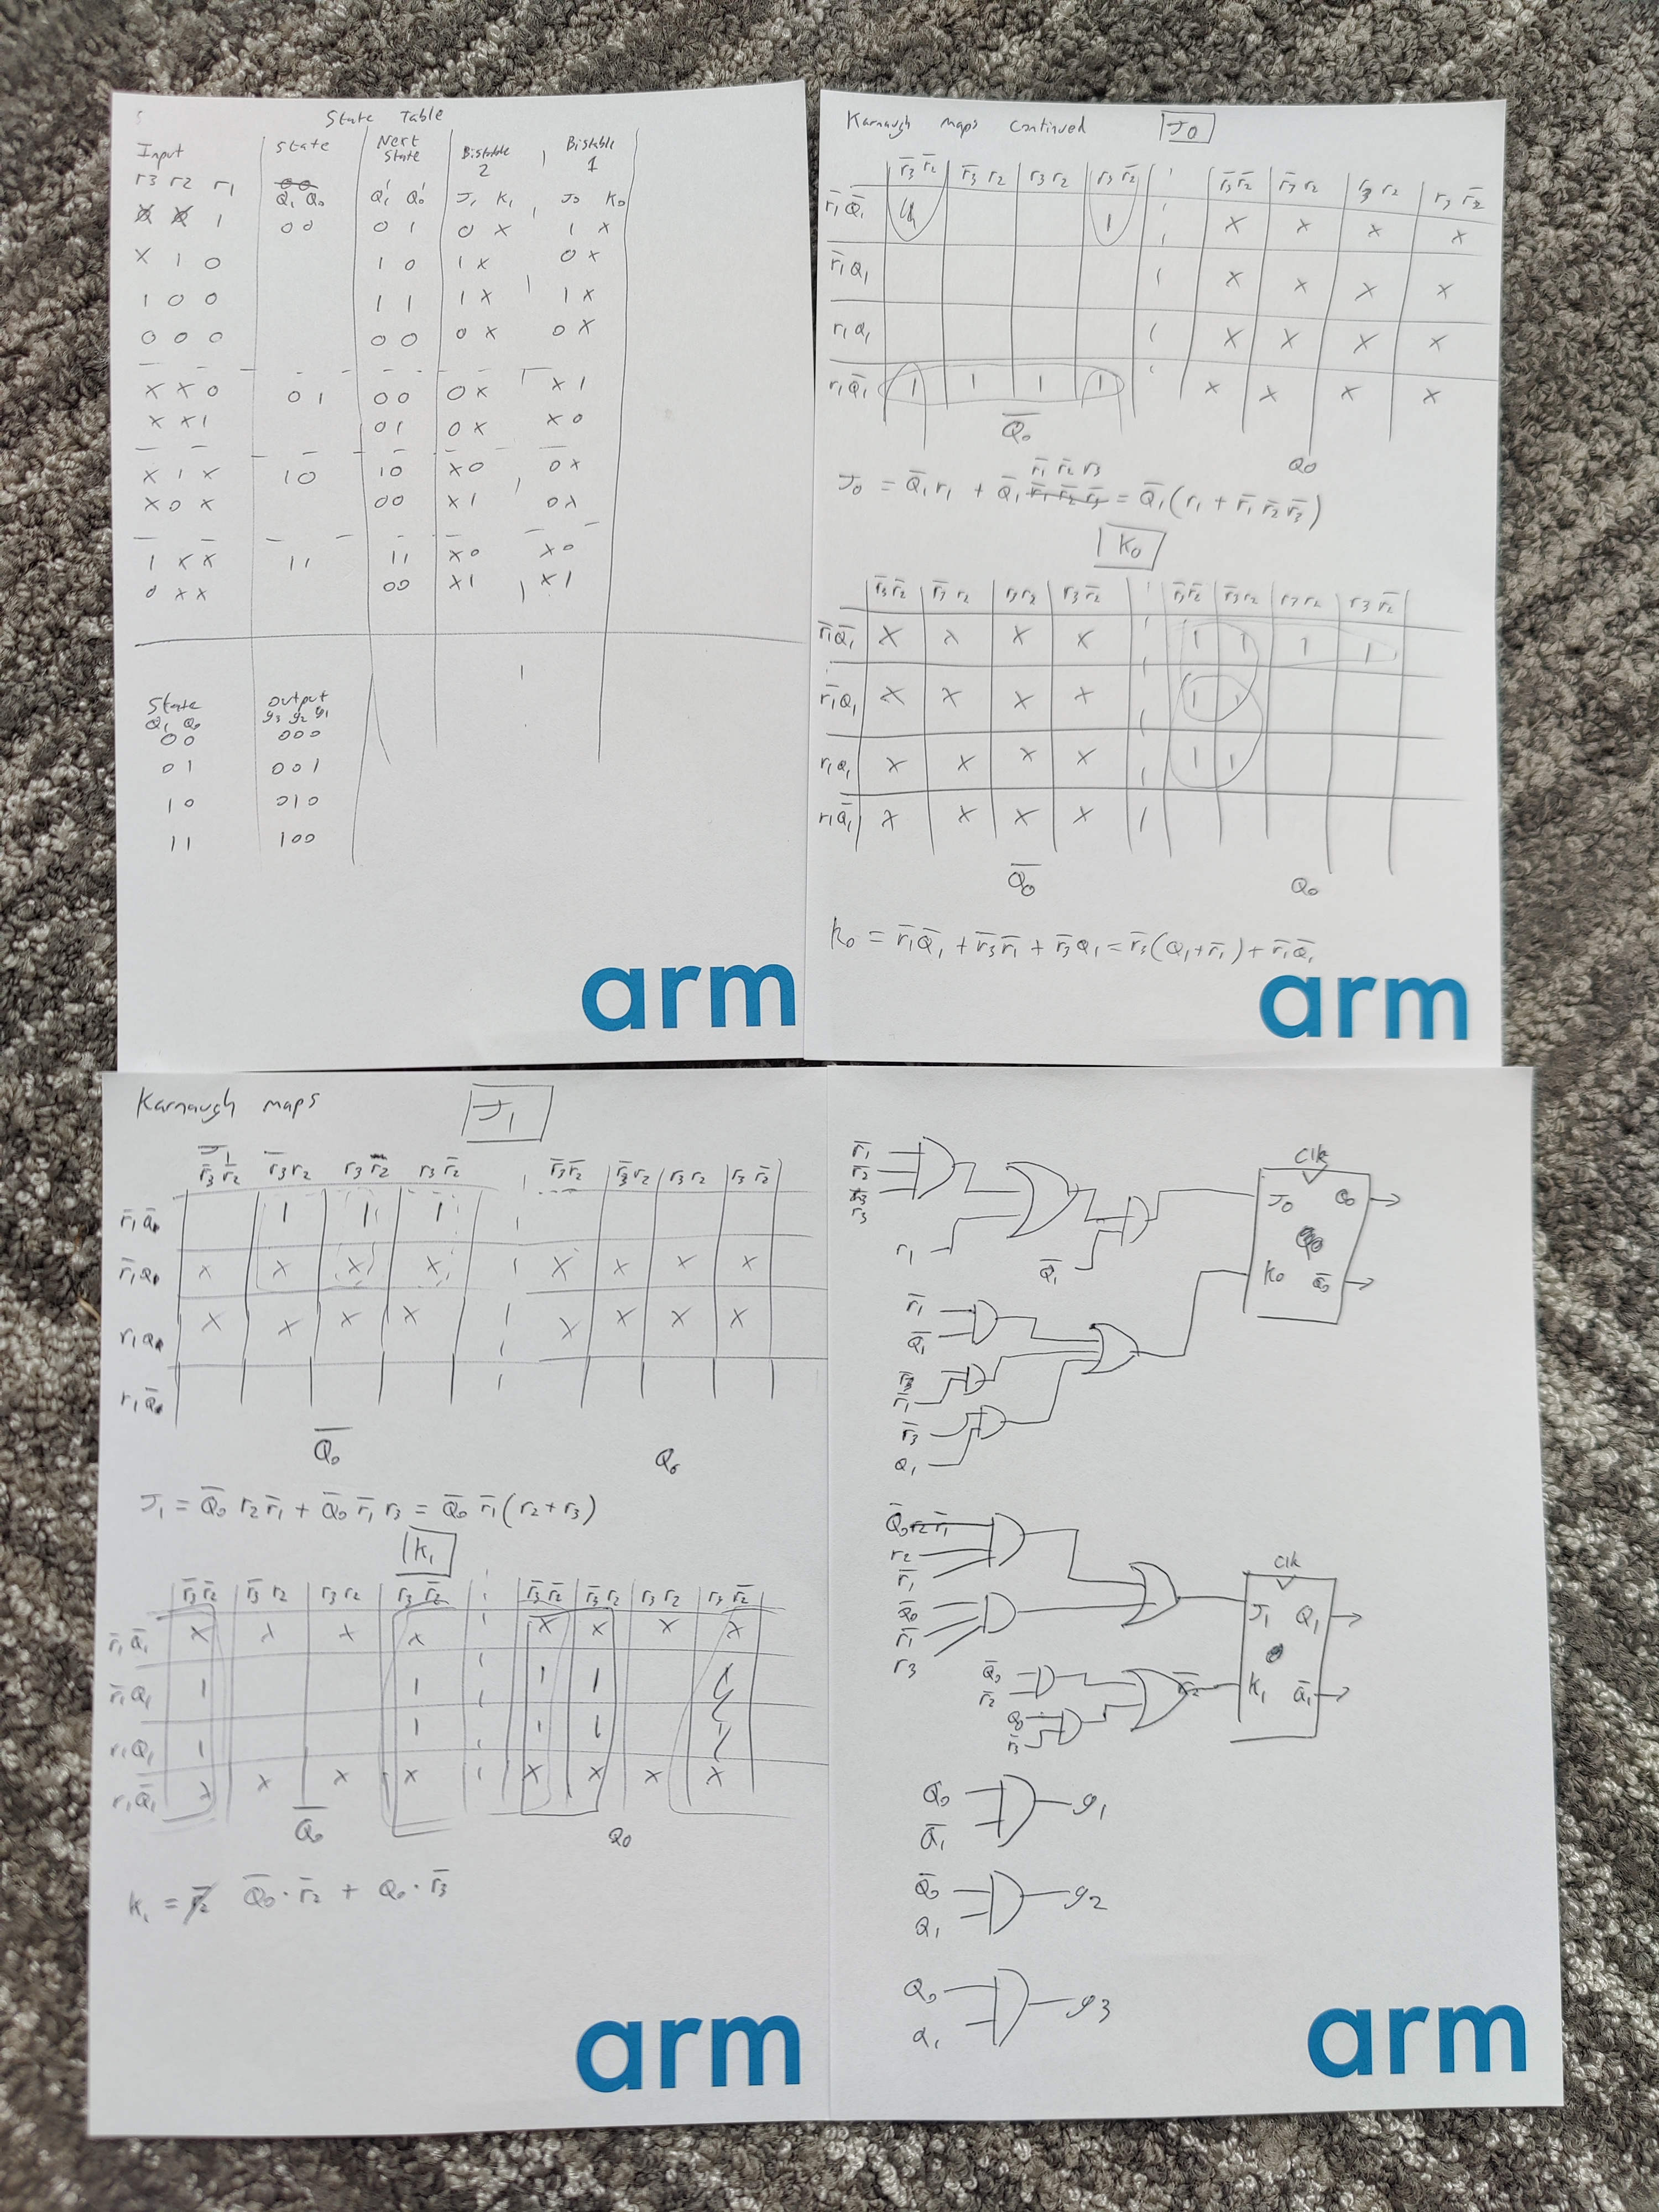 State Table
Input | State | Next State | Bistable 2 | Bistable 1
r3 r2 r1 | Q1 Q0 | Q1' Q0' | J1 K1 | J0 K0
X X 1 | 00 | 0 1 | 0 X | 1 X
X 1 0 | 1 0 | 1 X | 0 X
1 0 0 | 1 1 | 1 X | 1 X
0 0 0 | 0 0 | 0 X | 0 X
X X 0 | 0 1 | 00 | 0X | X 1
X X 1 | 01 | 0 X | X 0
X 1 X | 10 | 10 | X0 | 0X
X 0 X | 00 | X1 | 0X
1 X X | 11 | 11 | X0 | X0
0 X X | 00 | X1 | X1
State | Output
Q1 Q0 | g3 g2 g1
00 | 000
01 | 001
10 | 010
11 | 100
arm
Karnaugh maps continued J0
r̅3 r̅2 | r̅3 r2 | r3 r2 | r3 r̅2 | r̅3 r̅2 | r̅3 r2 | r3 r2 | r3 r̅2
r̅1 Q̅1 | 1 | X | X | X | X
r̅1 Q1 | X | X | X | X
r1 Q1 | X | X | X | X
r1 Q̅1 | 1 | 1 | 1 | 1 | X | X | X | X
Q̅0 Q0
r̅1 r̅2 r3
J0 = Q̅1 r1 + Q̅1 r̅1 r̅2 r̅3 = Q̅1 (r1 + r̅1 r̅2 r̅3)
K0
r̅3 r̅2 | r̅3 r2 | r3 r2 | r3 r̅2 | r̅3 r̅2 | r̅3 r2 | r3 r2 | r3 r̅2
r̅1 Q̅1 | X | X | X | X | 1 | 1 | 1 | 1
r̅1 Q1 | X | X | X | X | 1 | 1
r1 Q1 | X | X | X | X | 1 | 1
r1 Q̅1 | X | X | X | X
Q̅0 Q0
K0 = r̅1 Q̅1 + r̅3 r̅1 + r̅3 Q1 = r̅3 (Q1 + r̅1) + r̅1 Q̅1
arm
Karnaugh maps J1
J1
r̅3 r̅2 | r̅3 r2 | r3 r2 | r3 r̅2 | r̅3 r̅2 | r̅3 r2 | r3 r2 | r3 r̅2
r̅1 Q̅0 | 1 | 1 | 1
r̅1 Q0 | X | X | X | X | X | X | X | X
r1 Q0 | X | X | X | X | X | X | X | X
r1 Q̅0
Q̅0 Q0
J1 = Q̅0 r2 r̅1 + Q̅0 r̅1 r3 = Q̅0 r̅1 (r2 + r3)
K1
r̅3 r̅2 | r̅3 r2 | r3 r2 | r3 r̅2 | r̅3 r̅2 | r̅3 r2 | r3 r2 | r3 r̅2
r̅1 Q̅1 | X | X | X | X | X | X | X | X
r̅1 Q1 | 1 | 1 | 1 | 1
r1 Q1 | 1 | 1 | 1 | 1
r1 Q̅1 | X | X | X | X | X | X | X | X
Q̅0 Q0
K1 = r̅2 Q̅0 · r̅2 + Q0 · r̅3
arm
r̅1
r̅2
r3
r1
Q̅1
Clk
J0 Q0
K0 Q̅0
r̅1
Q̅1
r̅1
r̅3
Q1
Q̅0 r2 r̅1
r2
r̅1
Q̅0
r̅1
r3
Clk
J1 Q1
K1 Q̅1
Q̅0
r̅2
r̅2
Q0
r̅3
Q0
Q̅1
g1
Q̅0
Q1
g2
Q0
Q1
g3
arm